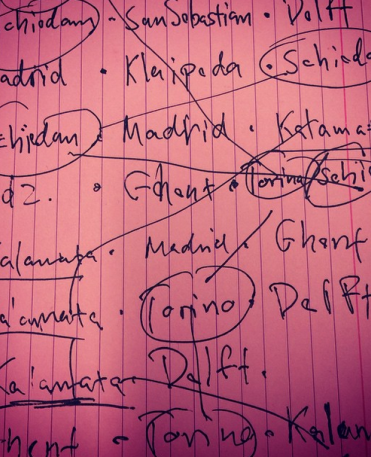 chiedam - San Sebastian · Delft
adrid · Klaipeda · Schieda
chiedam Madrid · Katama
dz. · Ghent · Torino Schi
alamata · Madrid · Ghent
a'amata · Torino · Delft
Ka'amata Delft.
hent · Torino · Kalam